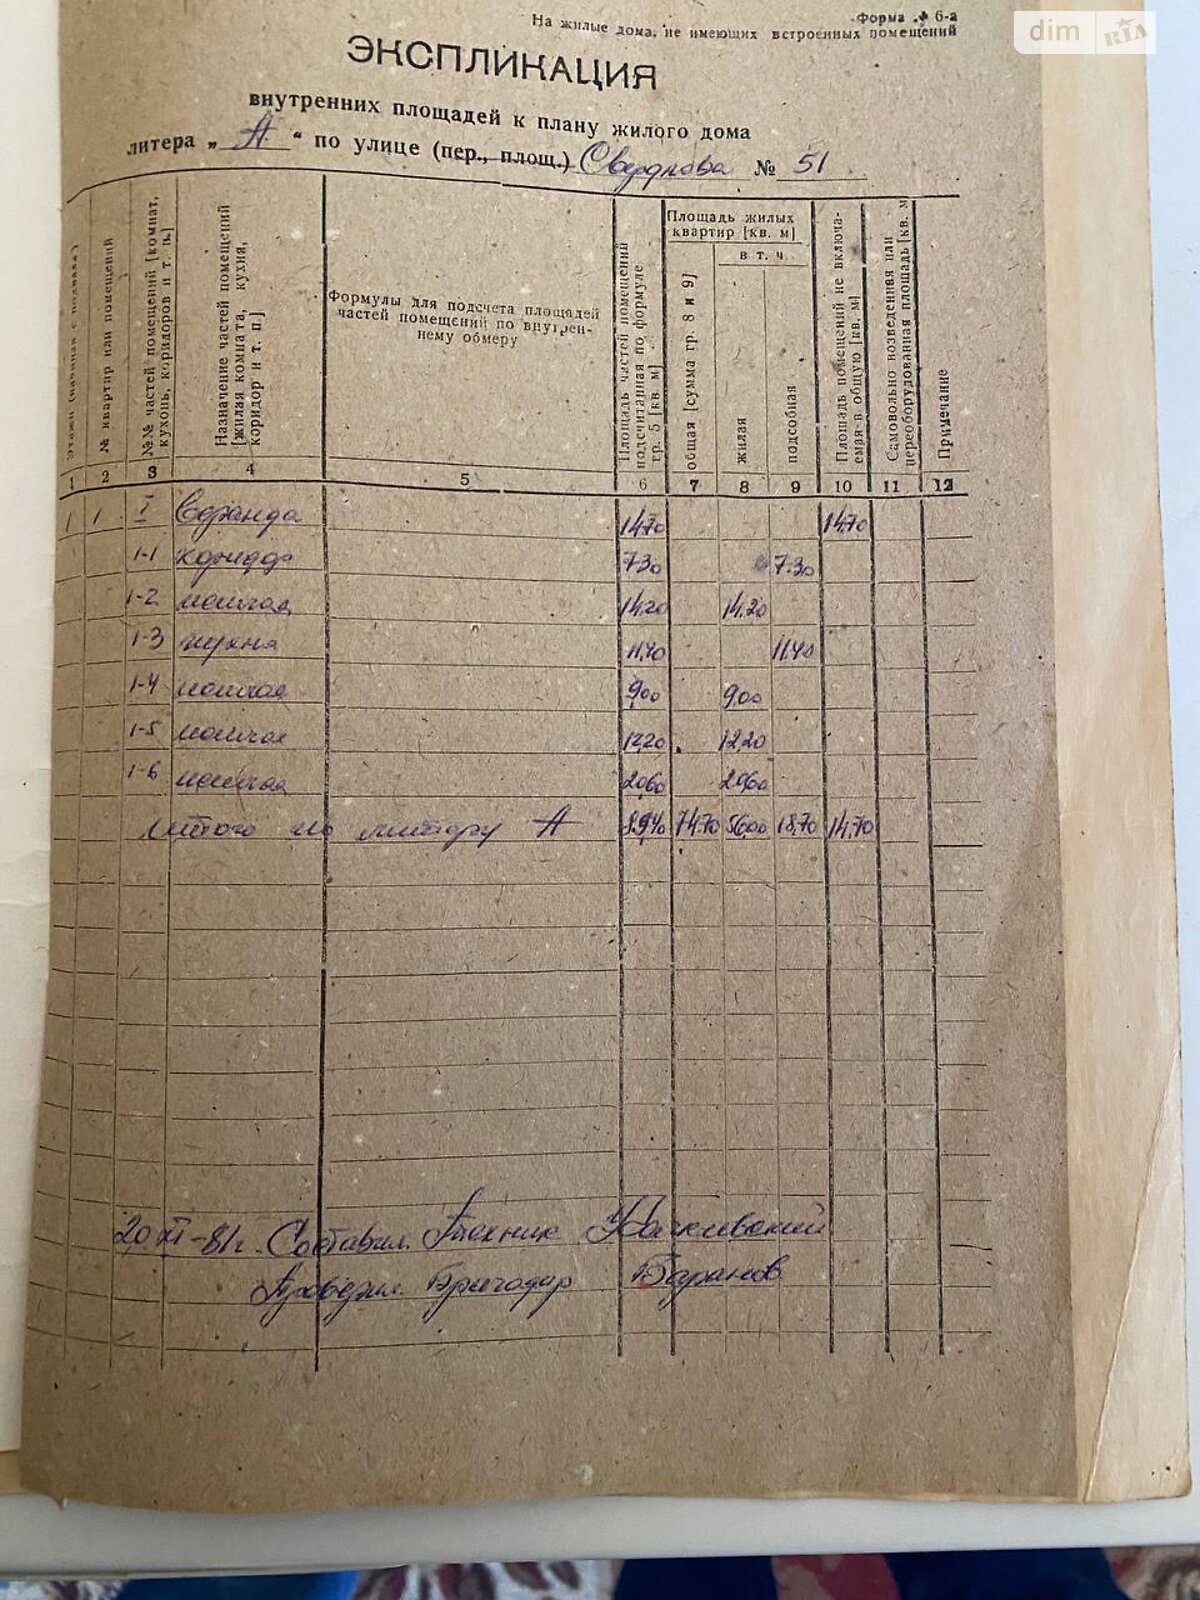 Форма № 6-а
На жилые дома, не имеющих встроенных помещений
dim RIA
ЭКСПЛИКАЦИЯ
внутренних площадей к плану жилого дома
литера „ А “ по улице (пер., площ.) Свердлова № 51
Этажи (начиная с подвала)
№ квартир или помещений
№№ частей помещений [комнат, кухонь, коридоров и т. п.]
Назначение частей помещений [жилая комната, кухня, коридор и т. п.]
Формулы для подсчета площадей
частей помещений по внутрен-
нему обмеру
Площадь частей помещений подсчитанная по формуле гр. 5 [кв. м]
Площадь жилых
квартир [кв. м]
в т. ч.
общая [сумма гр. 8 и 9]
жилая
подсобная
Площадь помещений не включа-емая в общую [кв. м]
Самовольно возведенная или переоборудованная площадь [кв. м
Примечание
1 2 3 4 5 6 7 8 9 10 11 12
1 1 I Веранда 14.70 14.70
1-1 коридор 7.30 7.30
1-2 жилая 14.20 14.20
1-3 кухня 11.40 11.40
1-4 жилая 9.00 9.00
1-5 жилая 12.20 12.20
1-6 жилая 20.60 20.60
Итого по литеру А 89.40 74.70 56.00 18.70 14.70
20 XI-81г. Составил Техник
Проверил Бригадир Баранов